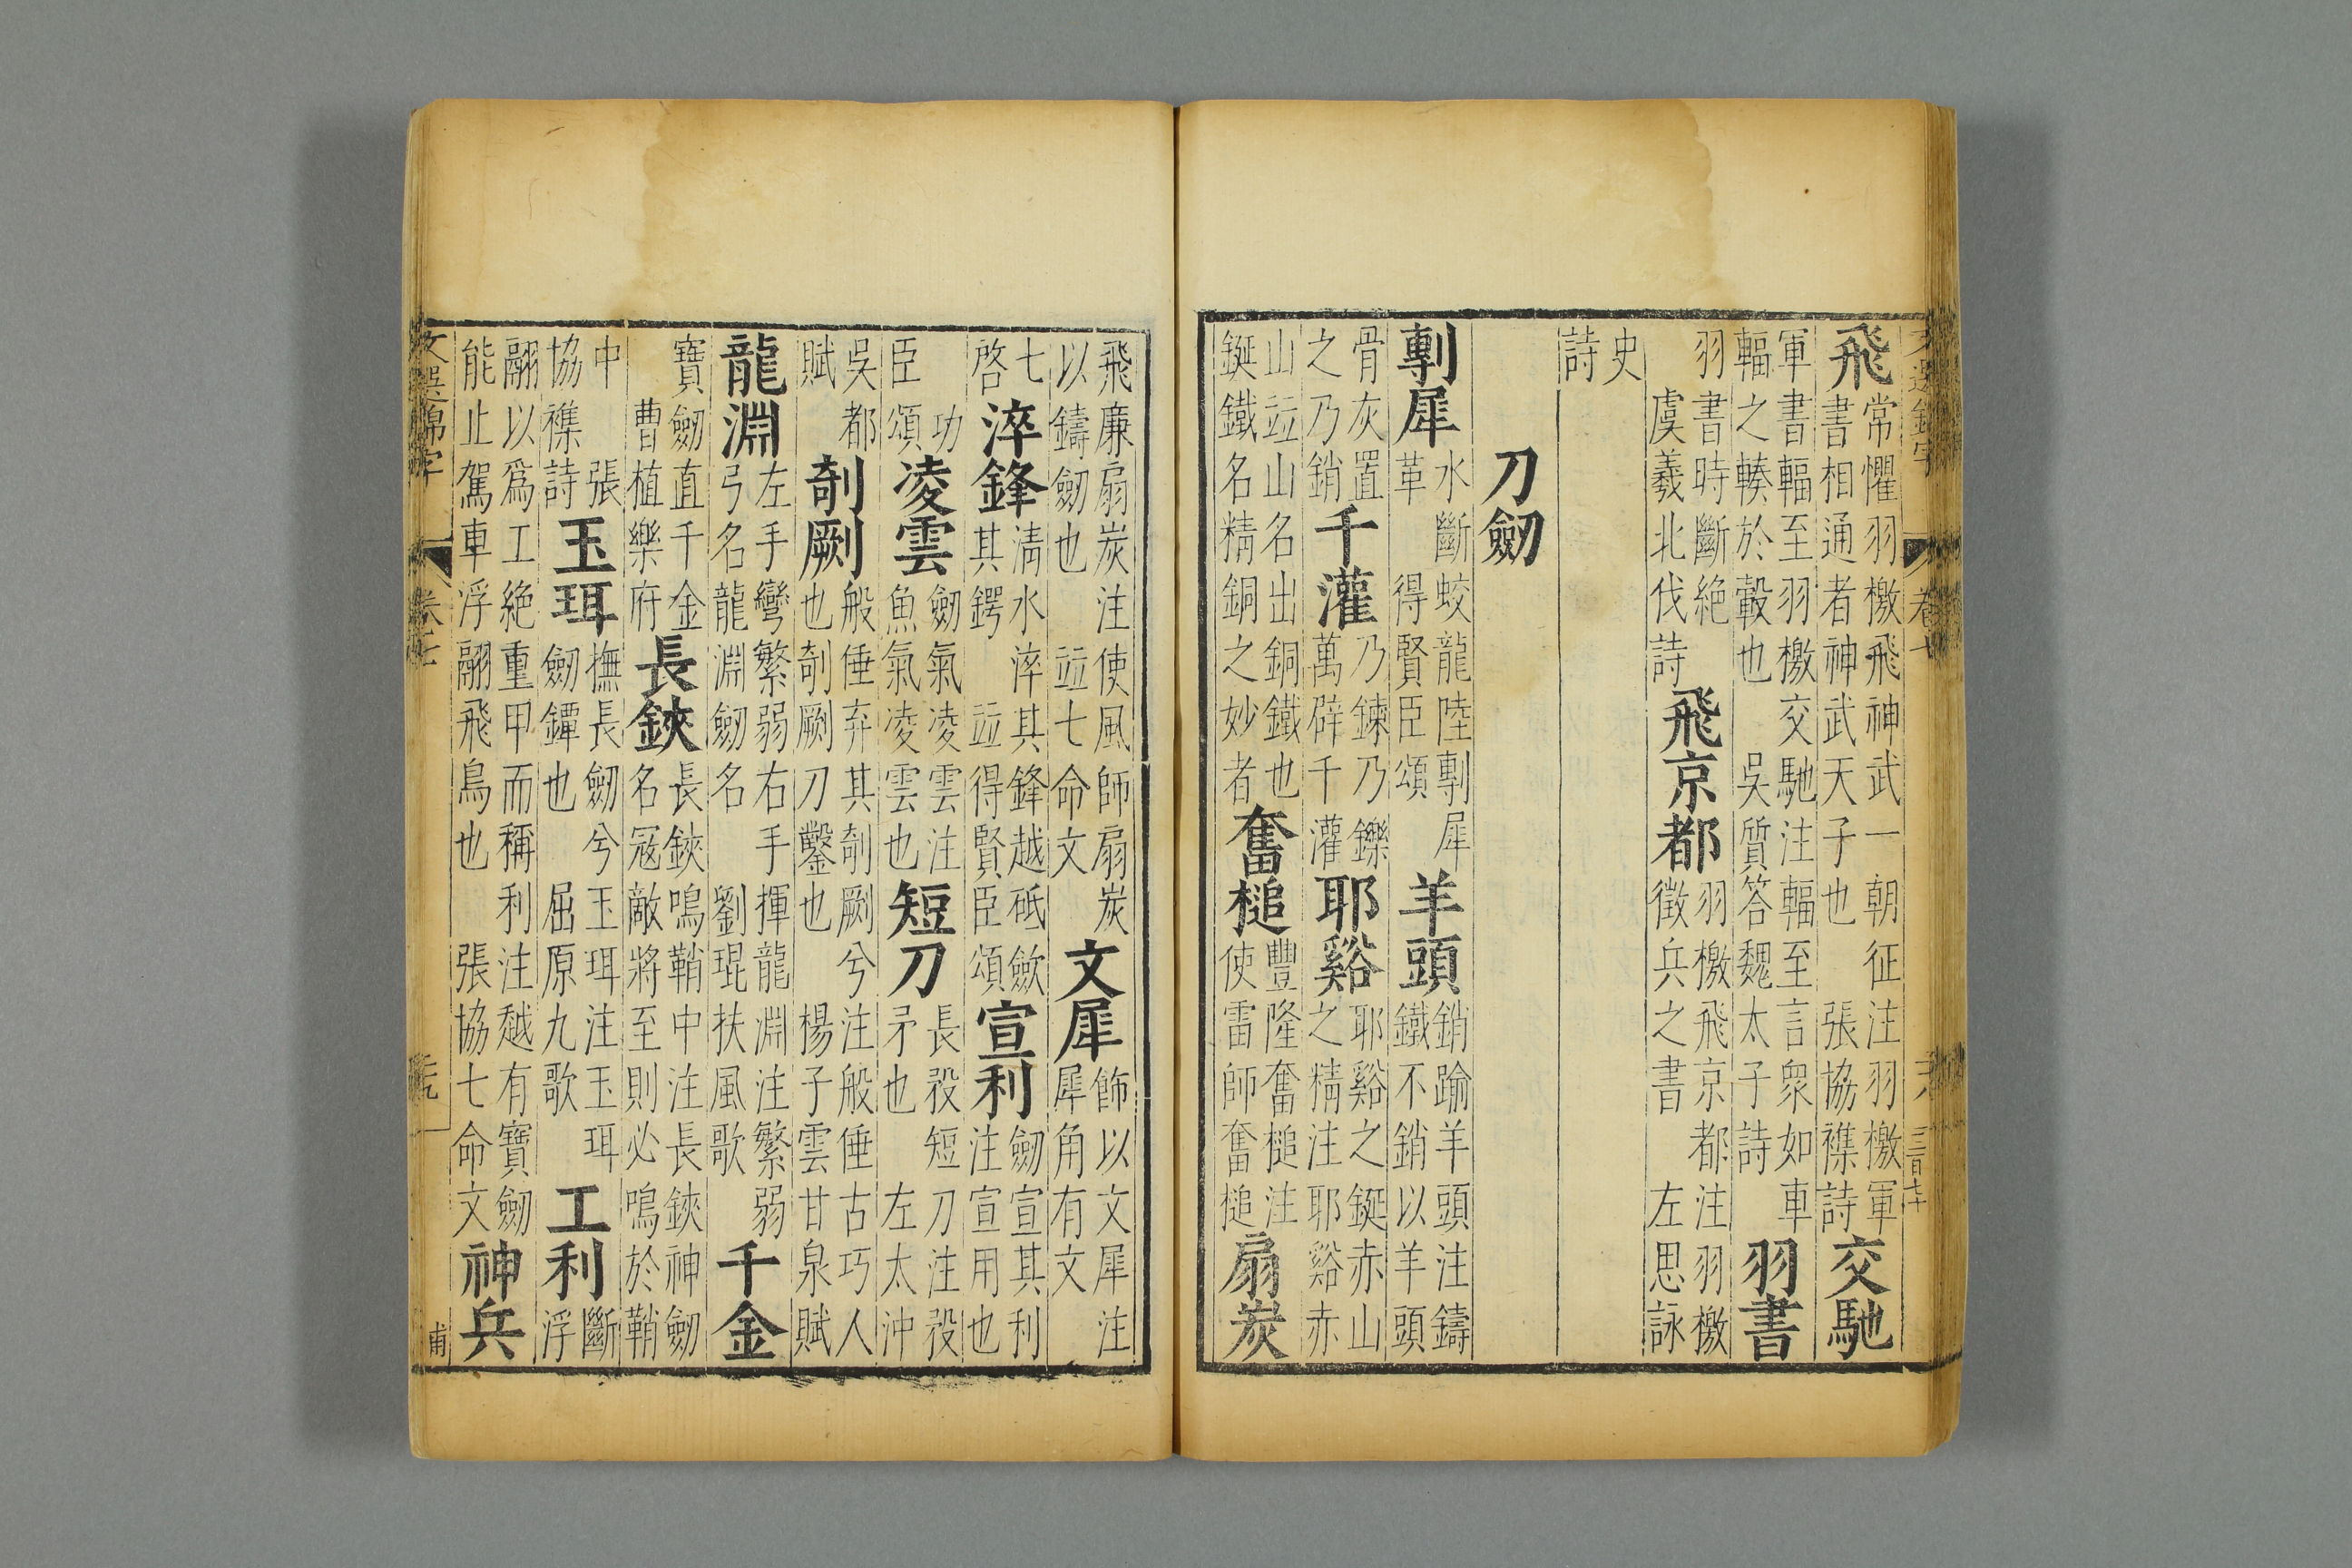 飛常懼羽檄飛神武一朝征注羽檄軍書相通者神武天子也 張協襍詩交馳
軍書輻至羽檄交馳注輻至言衆如車輻之輳於轂也 吳質答魏太子詩羽書
羽書時斷絶虞羲北伐詩飛京都羽檄飛京都注羽檄徵兵之書 左思詠
史詩
刀劒
剸犀水斷蛟龍陸剸犀革 得賢臣頌羊頭銷踰羊頭注鑄鐵不銷以羊頭
骨灰置之乃銷千灌乃鍊乃鑠萬辟千灌耶谿耶谿之鋋赤山之精注耶谿赤
山竝山名出銅鐵也鋋鐵名精銅之妙者奮槌豐隆奮槌注使雷師奮槌扇炭
飛廉扇炭注使風師扇炭以鑄劒也 竝七命文文犀飾以文犀注犀角有文
七啓淬鋒清水淬其鋒越砥歛其鍔 竝得賢臣頌宣利劒宣其利注宣用也
功臣頌凌雲劒氣凌雲注魚氣凌雲也短刀長殳短刀注殳矛也 左太沖
吳都賦剞劂般倕弃其剞劂兮注般倕古巧人也剞劂刀鑿也 楊子雲甘泉賦
龍淵左手彎繁弱右手揮龍淵注繁弱弓名龍淵劒名 劉琨扶風歌千金
寶劒直千金曹植樂府長鋏長鋏鳴鞘中注長鋏神劒名冦敵將至則必鳴於鞘
中 張協襍詩玉珥撫長劒兮玉珥注玉珥劒鐔也 屈原九歌工利斷浮
翮以爲工絶重甲而稱利注越有寶劒能止駕車浮翮飛鳥也 張協七命文神兵
文選錦字 卷七 甫